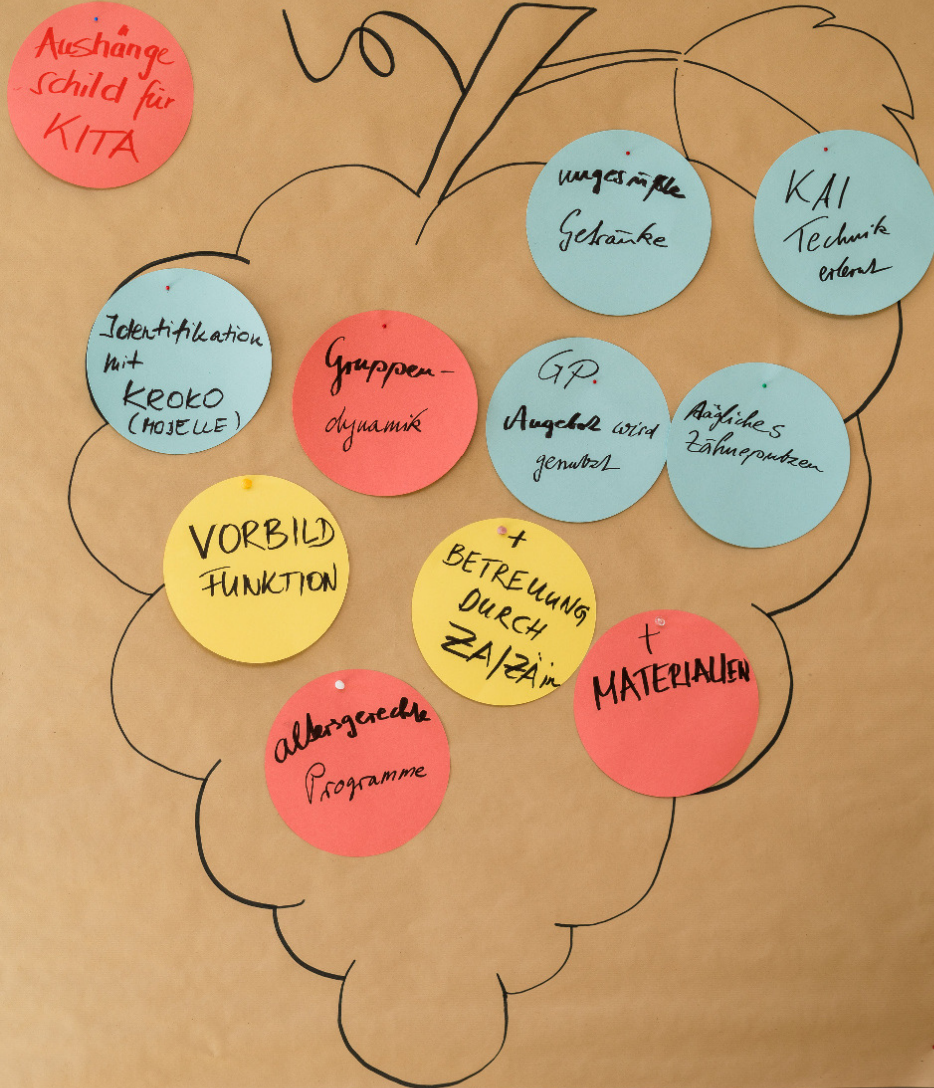 Aushänge
schild für
KITA
ungesüßte
Getränke
KAI
Technik
erlernt
Identifikation
mit
KROKO
(MOJELLE)
Gruppen-
dynamik
GP
Angebot wird
genutzt
tägliches
Zähneputzen
VORBILD
FUNKTION
+
BETREUUNG
DURCH
ZA/ZÄin
+
MATERIALIEN
altersgerechte
Programme